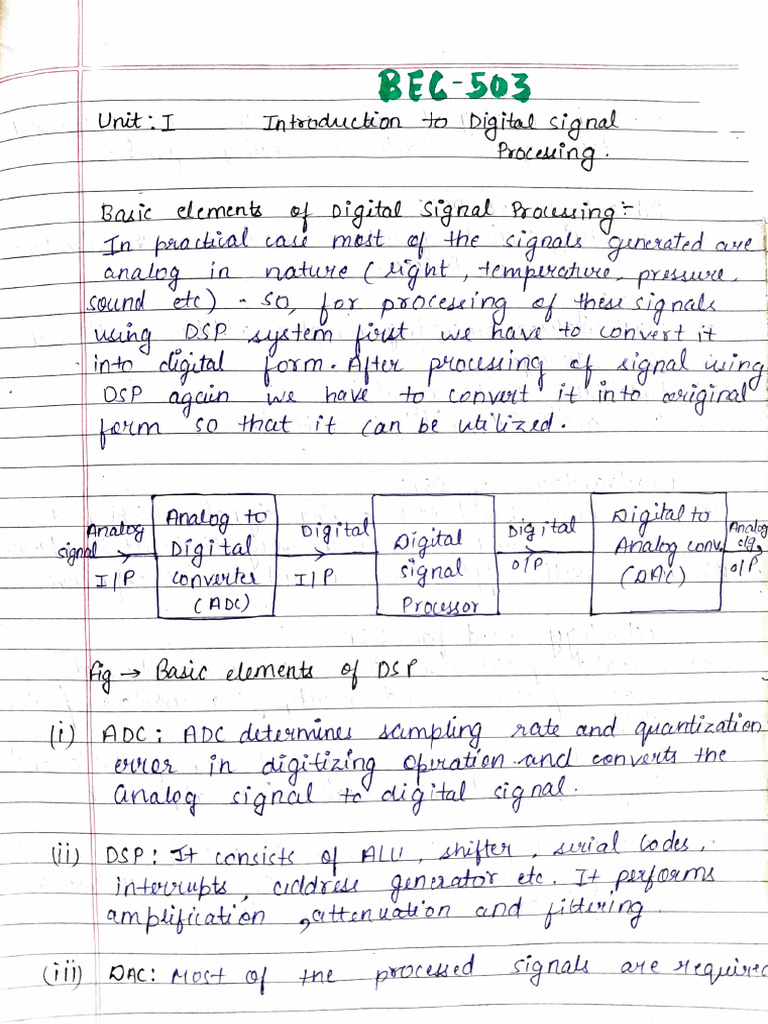 BEC-503
Unit: I Introduction to Digital Signal
Processing.
Basic elements of Digital Signal Processing:-
In practical case most of the signals generated are
analog in nature (light, temperature, pressure,
sound etc) - so, for processing of these signals
using DSP system first we have to convert it
into digital form. After processing of signal using
DSP again we have to convert it into original
form so that it can be utilized.
Analog
signal
I/P
Analog to
Digital
converter
(ADC)
Digital
I/P
Digital
signal
Processor
Digital
O/P
Digital to
Analog conv.
(DAC)
Analog
sig.
O/P.
fig → Basic elements of DSP
(i) ADC: ADC determines sampling rate and quantization
error in digitizing operation and converts the
analog signal to digital signal.
(ii) DSP: It consists of ALU, shifter, serial codes,
interrupts, address generator etc. It performs
amplification, attenuation and filtering.
(iii) DAC: Most of the processed signals are required